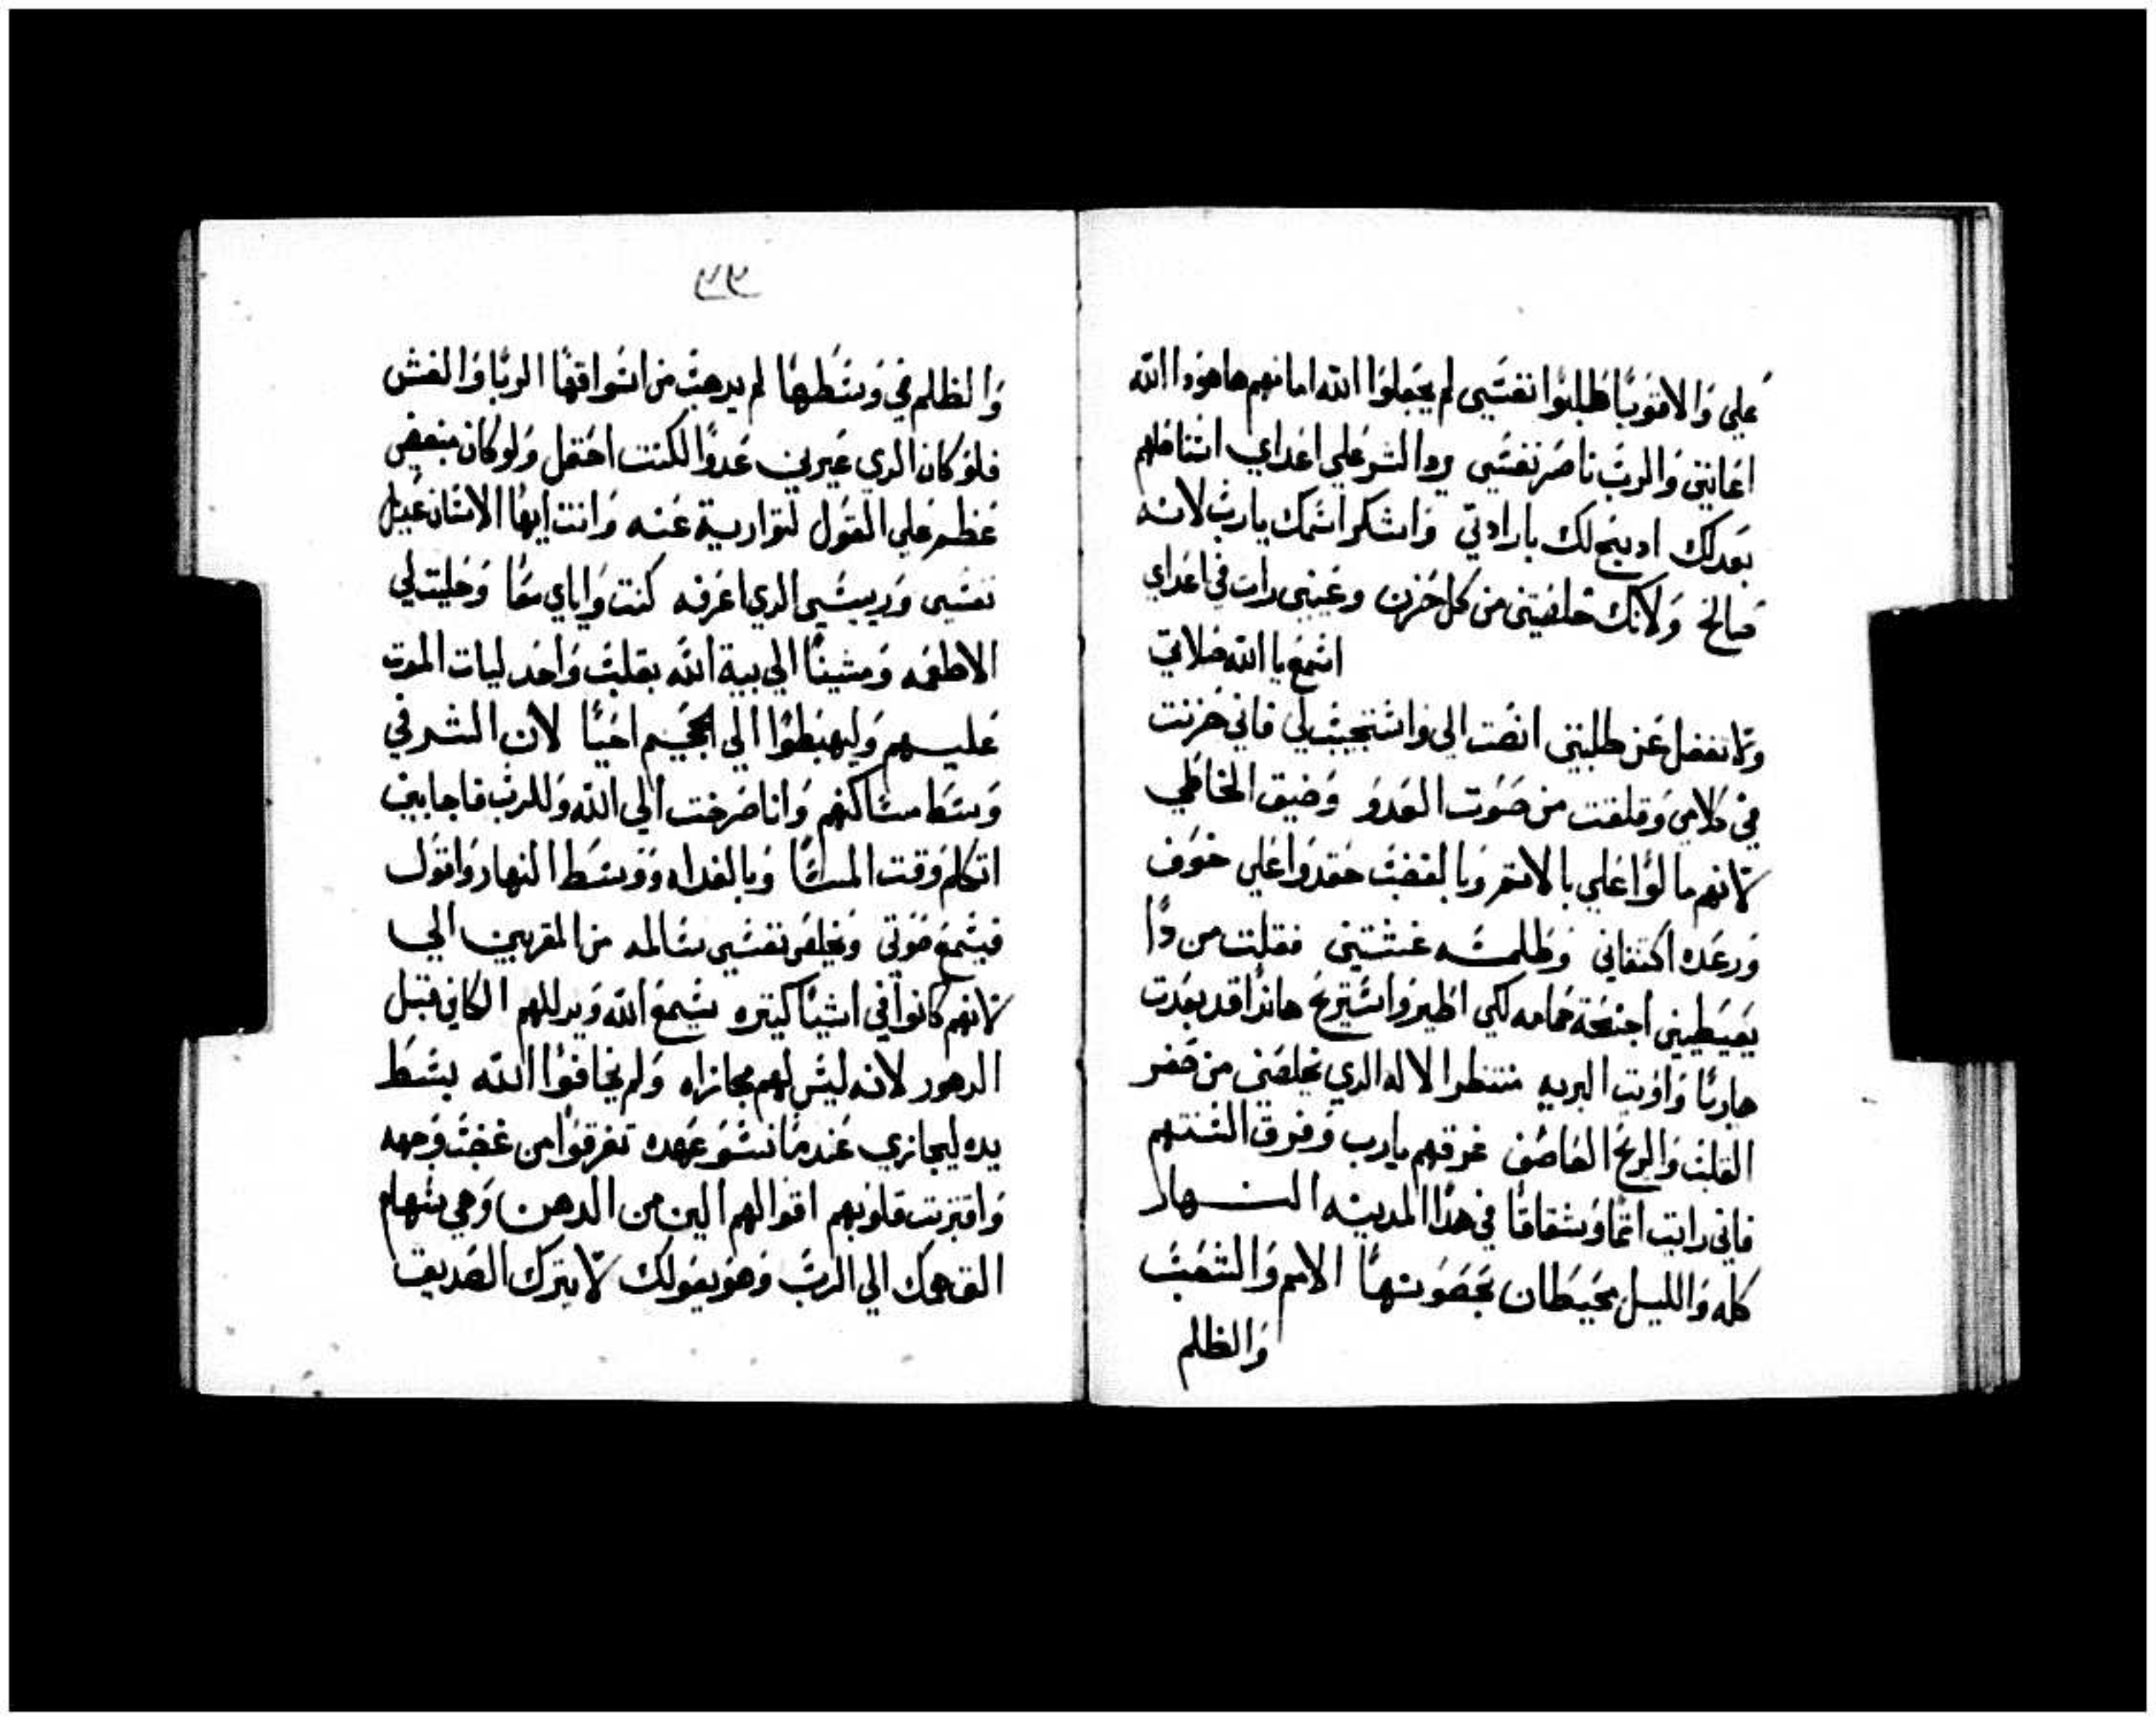 علي والاقويا طلبوا نفسي لم يجعلوا الله امامهم ها هودا الله
اعانني والرب ناصر نفسي رد الشر علي اعداي استاصلهم
بعدلك ادبح لك بارادتي واشكر اسمك يارب لانه
صالح ولانك خلصتني من كل حزن وعيني رات في اعداي
اسمع يا الله صلاتي
ولا تغفل عن طلبتي انصت الي واستجيب لي فاني حزنت
في كلامي وقلقت من صوت العدو وضيق الخاطي
لانهم مالوا علي بالاتم وبالغضب حقدوا علي خوف
ورعده اكتنفاني وظلمه غشتني فقلت من دا
يعيطيني اجنحة حمامه لكي اطير واستريح هاندا قد بعدت
هاربا واويت البريه منتظر الاله الدي يخلصني من صغر
القلب والريح العاصف غرقهم يارب وفرق السنتهم
فاني رايت اتما وشقاقا في هدا المدينه النهار
كله والليل محيطان بحصونها الاتم والتعب
والظلم
٩٩
والظلم في وسطها لم يدهب من اسواقها الربا والغش
فلو كان الدي عيرني عدوا لكنت احتمل ولو كان مبغضي
عظم علي القول لتوارية عنه وانت ايها الانسان عديل
نفسي وريسي الدي اعرفه كنت واياي معا وحليت لي
الاطعمه ومشينا الي بية الله بقلب واحد ليات الموت
عليهم وليهبطوا الي الجحيم احيا لان الشر في
وسط مساكنهم وانا صرخت الي الله وللرب فاجابني
اتكلم وقت المسا وبالغداه ووسط النهار واقول
فيسمع صوتي ويخلص نفسي سالمه من المقربين الي
لانهم كانوا في اشيا كتيره يسمع الله ويدللهم الكاين قبل
الدهور لانه ليس لهم مجازاه ولم يخافوا الله بسط
يده ليجازي عندما نسو عهده تفرقوا من غضب وجهه
واقتربت قلوبهم اقوالهم الين من الدهن وهي سهام
الق همك الي الرب وهو يعولك لا يترك الصديق